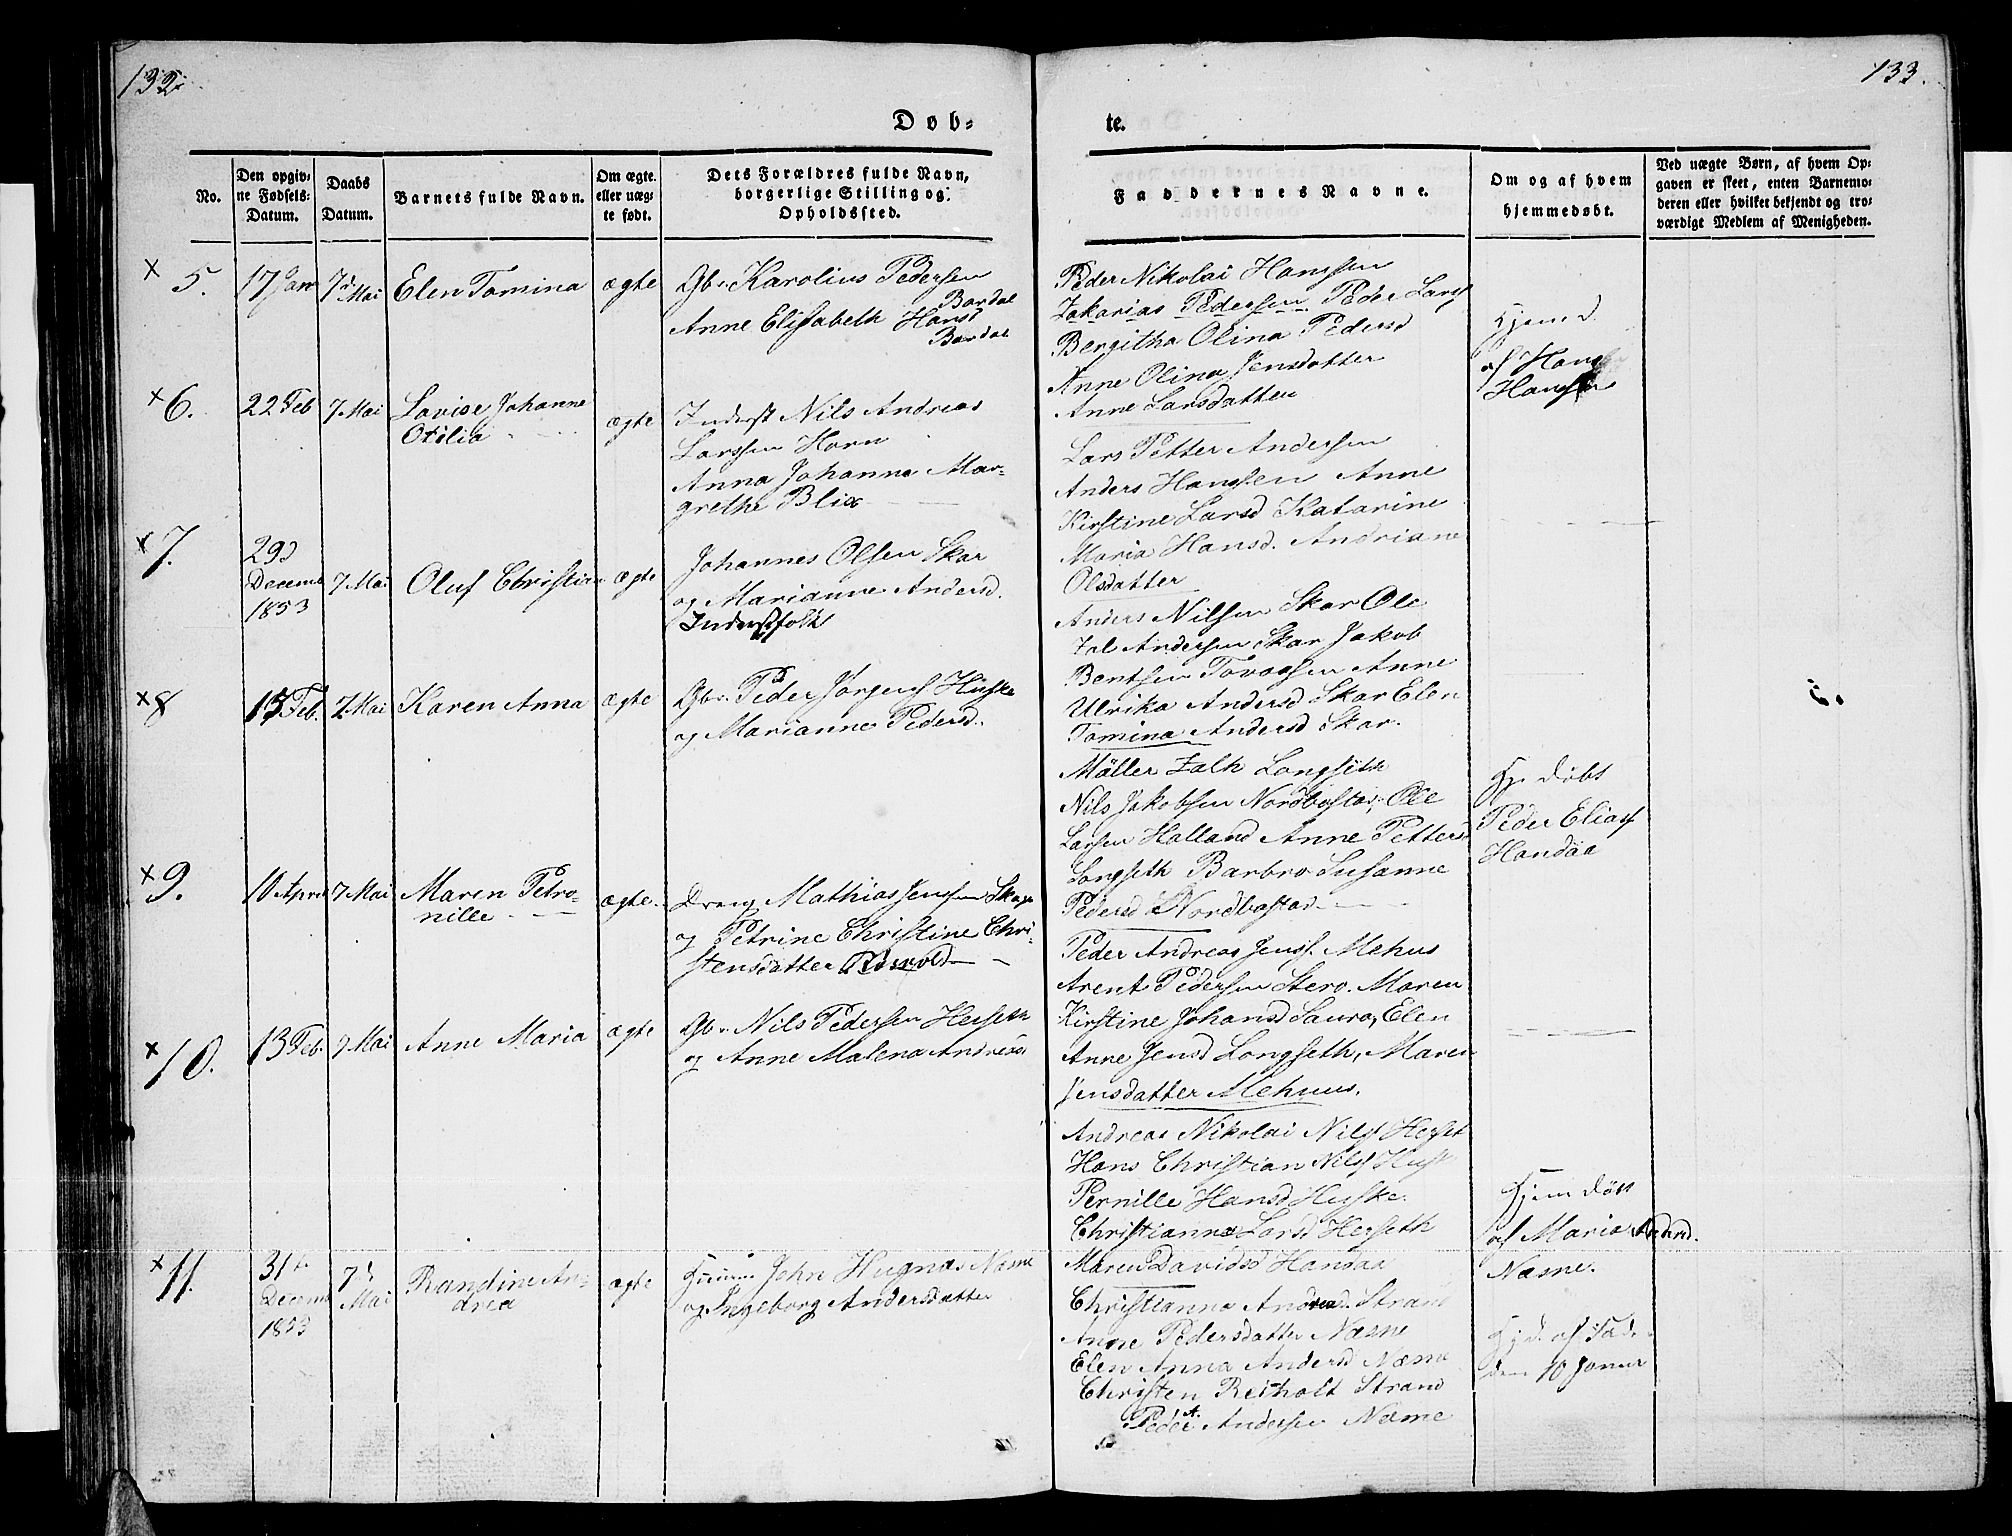 132.
133.
Døb-
te.
No.
Den opgiv-
ne Fødsels-
Datum.
Daabs
Datum.
Barnets fulde Navn.
Om ægte.
eller uæg-
te født.
Dets Forældres fulde Navn,
borgerlige Stilling og
Opholdssted.
Faddernes Navne.
Om og af hvem
hjemmedøbt.
Ved uægte Børn, af hvem Op-
gaven er skeet, enten Barnemo-
deren eller hvilket bekjendt og tro-
værdigt Medlem af Menigheden.
x 5.
17 Jan
7d Mai
Elen Tomina
ægte
Gbr. Karolius Pedersen
Bardal
Anne Elisabeth Hansd
Bardal
Peder Nikolai Hanssen
Zakarias Pedersen Peder Larss
Bergitha Olina Pedersd
Anne Olina Jensdatter
Anne Larsdatter
Hjemd.
af Hans
Hanssen
x 6.
22 Feb
7 Mai
Lovise Johanne
Otilia
ægte
Inderst Nils Andreas
Larssen Horn
Anna Johanna Mar-
grethe Blix
Lars Petter Andersen
Anders Hanssen Anne
Kirstine Larsd Katarine
Maria Hansd. Andriane
Olsdatter
x 7.
29d
Decemb
1853
7 Mai
Oluf Christian
ægte
Johannes Olsen Skar
og Marianne Andersd.
Inderstfolk
Anders Nilsen Skar Ole
Andersen Skar Jakob
Bentsen Anne
Ulrika Andersd Skar Elen
Tomina Andersd Skar.
x 8
15 Feb.
7 Mai
Karen Anna
ægte
Gbr. Peder Jørgens Huske
og Marianne Pedersd.
Møller Falk Longseth
Nils Jakobsen Nordbostad, Ole
Larsen Halland Anne Petters
Longseth Barbro Susanne
Pedersd Nordbostad
Hj. døbt
Peder Elias
Handaa
x 9.
10 April
7 Mai
Maren Petro-
nille
ægte.
Dreng Mathias Jenssen
og Petrine Christine Chri-
stensdatter
Peder Andreas Jenss. Mehus
Arent Pedersen Stero. Maren
Kirstine Johansd Saura, Elen
Anne Jensd Longseth, Maren
Jensdatter Mehuus.
x 10.
13 Feb.
7 Mai
Anne Maria
ægte
Gbr. Nils Pedersen Herseth
og Anne Malena Andreasd
Andreas Nikolai Nilss Herset
Hans Christian Nilss
Pernille Hansd Huske.
Christianna Larsd Herseth
Maren Davidsd Handaa
Hjemdøbt
af Maria Andersd.
Næsne.
x 11.
31te
Decemb
1853
7d
Mai
Randine An-
drea
ægte
John Hugnas Næsne
og Ingeborg Andersdatter
Christianna Andreasd. Strand
Anne Pedersdatter Næsne
Elen Anna Andersd Næsne
Christen Reiholt Strand
Peder A. Andersen Næsne
Hjd. af Fad.
den 10 Januar